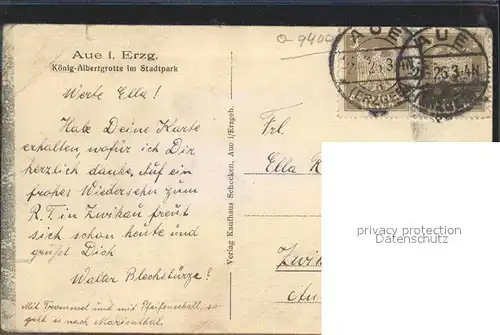 Q 9400
AUE
AUE
(ERZGEB
Aue i. Erzg.
König-Albertgrotte im Stadtpark
Werte Ella!
Habe Deine Karte
erhalten, wofür ich Dir
herzlich danke. Auf ein
frohes Wiedersehn zum
R.T. in Zwikau freut
sich schon heute und
grüßt Dich
Walter Blechstürze?
Mit Trommel und mit Pfeifenschall, so
geht es nach Marienthal.
Verlag Kaufhaus Schocken, Aue i/Erzgeb.
Frl.
Ella
Zwi
privacy protection
Datenschutz